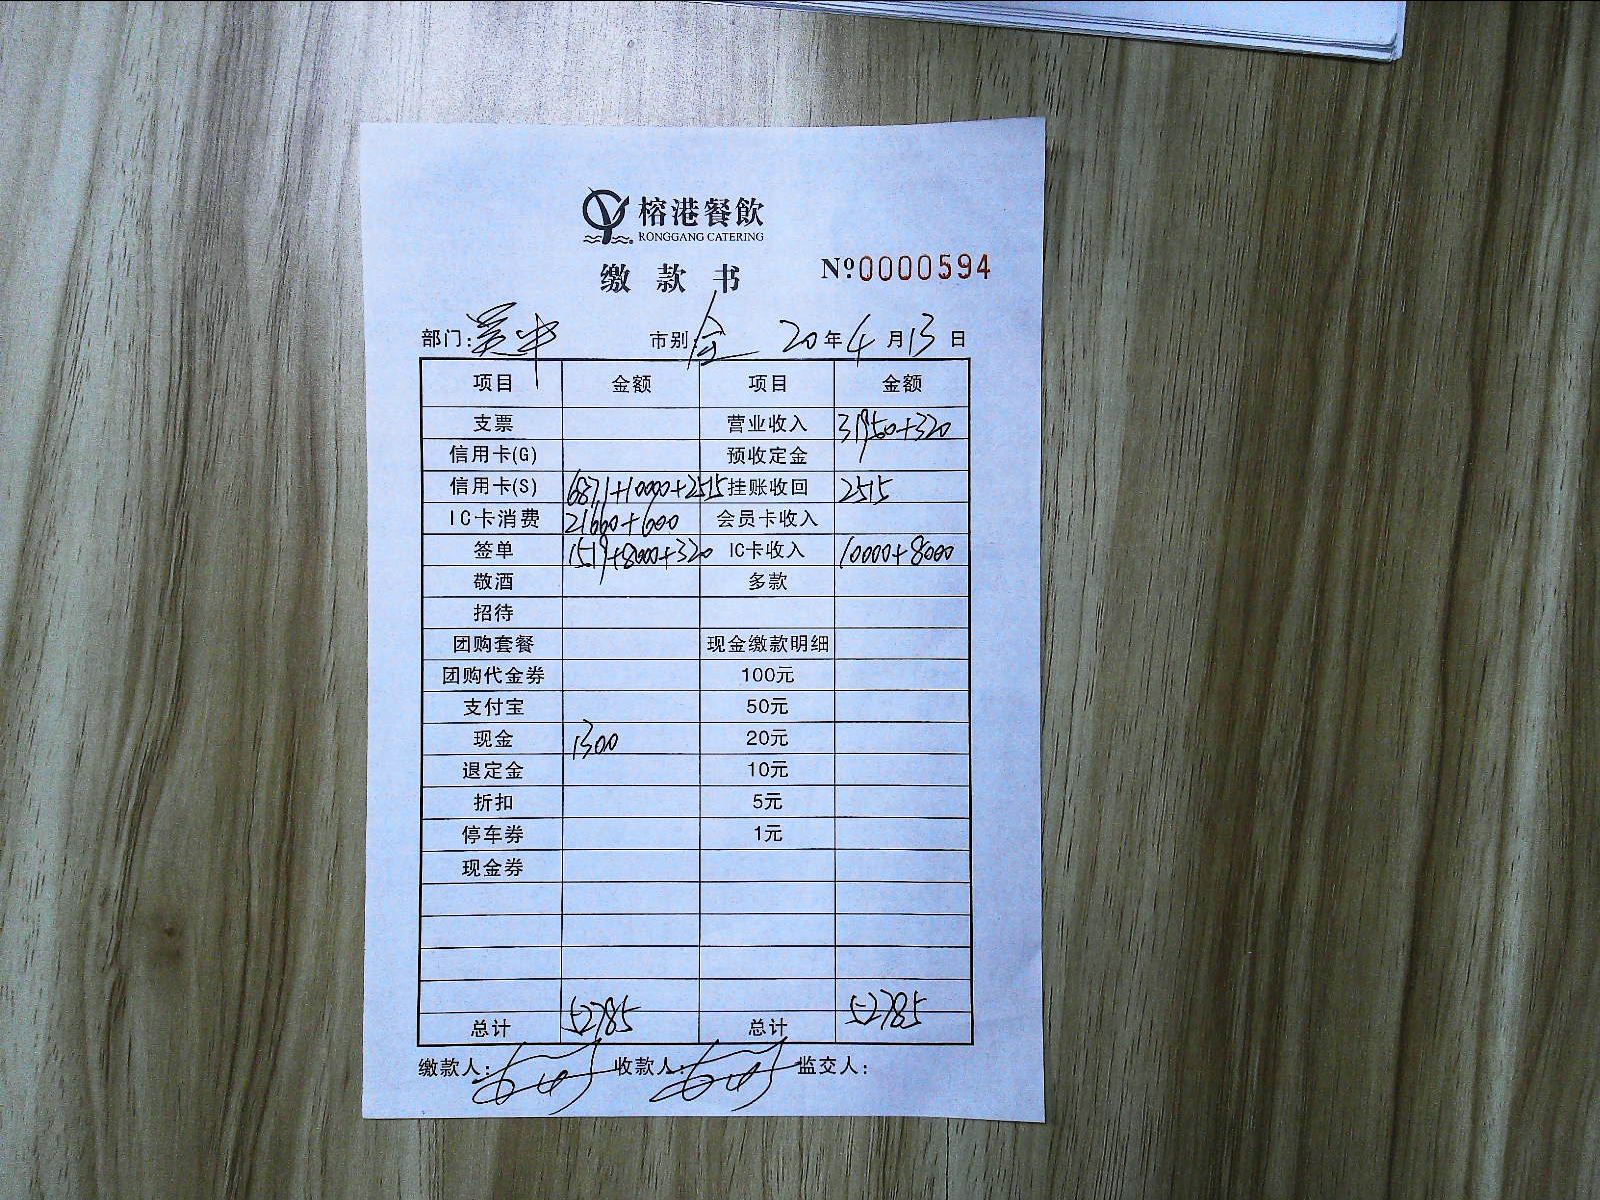 榕港餐飲
RONGGANG CATERING
缴款书 Nº0000594
部门:吴中 市别:全 20年4月13日
项目 金额 项目 金额
支票 营业收入 31950+320
信用卡(G) 预收定金
信用卡(S) 6871+10000+2515 挂账收回 2515
IC卡消费 21660+600 会员卡收入
签单 1519+8000+320 IC卡收入 10000+8000
敬酒 多款
招待
团购套餐 现金缴款明细
团购代金券 100元
支付宝 50元
现金 1300 20元
退定金 10元
折扣 5元
停车券 1元
现金券
总计 52785 总计 52785
缴款人: 收款人: 监交人: